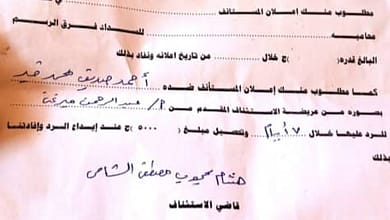 مطلوب منك إعلان المستأنف
في
محاميه
لسداد فرق الرسم
البالغ قدره: ج خلال من تاريخ اعلانه ونفاد بذلك
كما مطلوب منك إعلان المستأنف ضده أحمد صديق محمد
بصوره من عريضة الاستئناف المقدم من أ/ عبد الرحمن
للرد عليها خلال ٧ أيام وتحصيل مبلغ ( ٥٠٠٠ ) ج عند إيداع الرد وإفادتنا
هشام محجوب مصطفى الشامي
قاضي الاستئناف